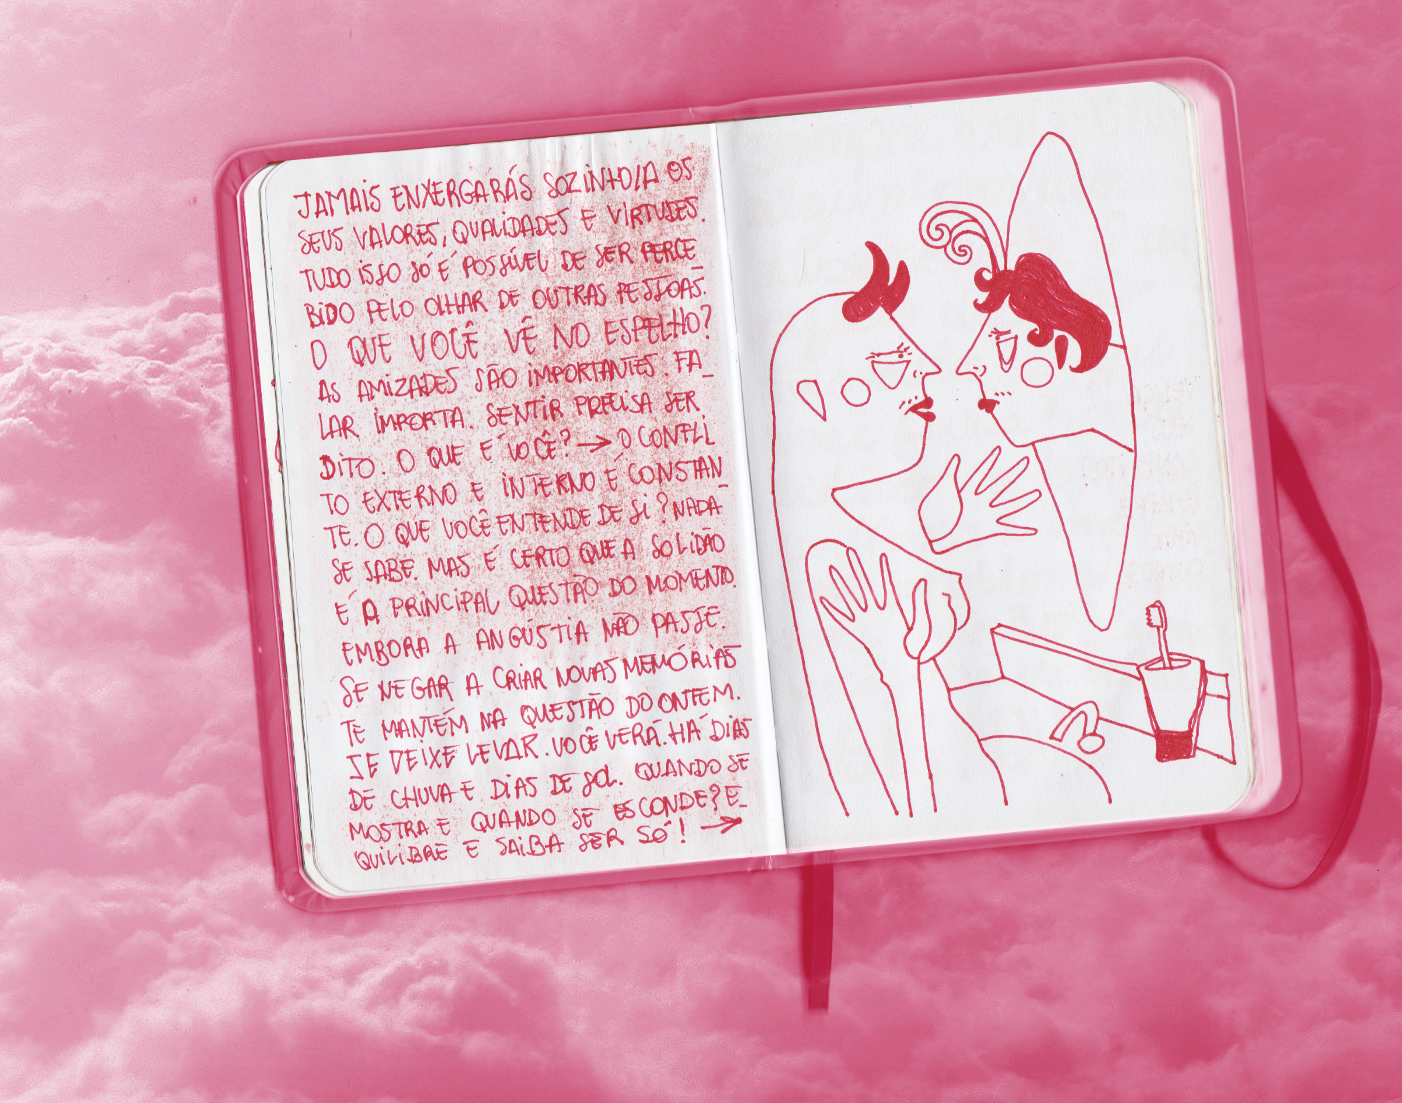 JAMAIS ENXERGARÁS SOZINHO/A OS
SEUS VALORES, QUALIDADES E VIRTUDES.
TUDO ISSO SÓ É POSSÍVEL DE SER PERCE_
BIDO PELO OLHAR DE OUTRAS PESSOAS.
O QUE VOCÊ VÊ NO ESPELHO?
AS AMIZADES SÃO IMPORTANTES. FA_
LAR IMPORTA. SENTIR PRECISA SER
DITO. O QUE É VOCÊ? → O CONFLI
TO EXTERNO E INTERNO É CONSTAN_
TE. O QUE VOCÊ ENTENDE DE SI? NADA
SE SABE. MAS É CERTO QUE A SOLIDÃO
É A PRINCIPAL QUESTÃO DO MOMENTO.
EMBORA A ANGÚSTIA NÃO PASSE.
SE NEGAR A CRIAR NOVAS MEMÓRIAS
TE MANTÉM NA QUESTÃO DO ONTEM.
SE DEIXE LEVAR. VOCÊ VERÁ. HÁ DIAS
DE CHUVA E DIAS DE SOL. QUANDO SE
MOSTRA E QUANDO SE ESCONDE? E_
QUILIBRE E SAIBA SER SÓ! →